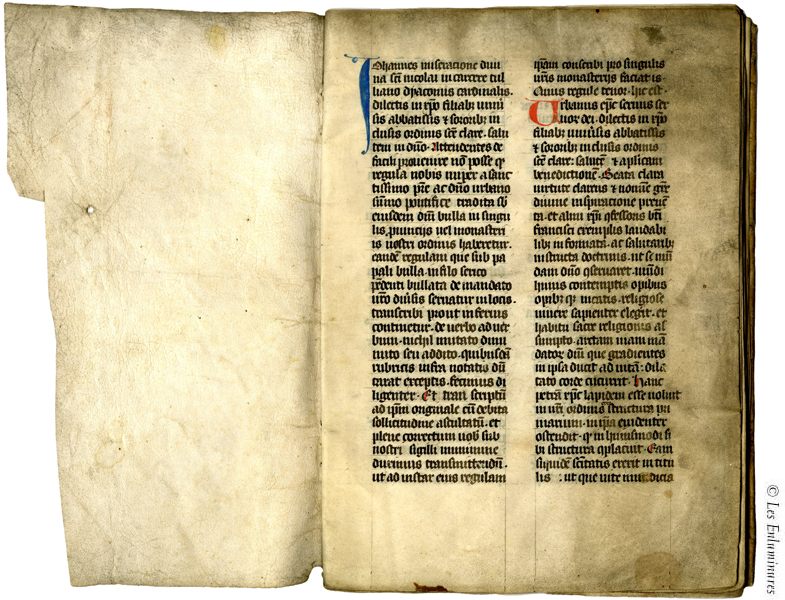 Iohannes miseracione diui
na scī nicolai in carcere tul
liano dyaconus cardinalis.
Dilectis in xp̄o filiab; uniū
sis abbatissis & sororib; in
clusis ordinis scē clare. salu
tem in dn̄o. Attendentes de
facili prouenire nō posse qȝ
regula nobis nuper a sanc
tissimo pr̄e ac dn̄o urbano
sūmo pontifice tradita sb̄
eiusdem dn̄i bulla in singu
lis, prouīcijs uel monasteri
is uestri ordinis haberetur.
eandē regulam que sub pa
pali bulla in filo serico
pr̄denti bullata de mandato
nr̄o diūsis seruatur in locis.
transcribi prout inferius
continetur. de uerbo ad uer
bum. nichil mutato dimi
nuto seu addito. quibusdā
rubricis infra notatis dū
taxat exceptis. fecimus di
ligenter. Et tran scriptū
ad ip̄m originale cū debita
sollicitudine ascultatū. et
plene correctum uob̄ sub
nostri sigilli munimine
duximus transmittendū.
ut ad instar eius regulam
ip̄am conscribi pro singulis
ur̄is monasterijs faciatis.
Cuius regule tenor. hic est.
Urbanus ep̄c seruus ser
uor dei. dilectis in xp̄o
filiab; uniūsis abbatissis
& sororib; inclusis ordinis
scē clare: salutē & aplicam
benedictionē. Beata clara
uirtute clarens & nomine gr̄e
diuine inspiracione preuē
ta. et almi xp̄i ɔfessoris bt̄i
francisci exemplis laudabi
lib; in formata. ac salutarib;
instructa doctrinis. ut se mū
dam dn̄o ɔseruaret. mūdi
huius contemptis opibus
religiose
uiuere sapienter elegit. et
habitu sacre religionis as
sumpto. artam uiam mā
dator dn̄i que gradientes
in ipsa ducit ad uitā: dila
tato corde cucurrit. Hanc
petrā xp̄c lapidem esse uoluit
in ur̄i ordinis structura pri
marium. in ip̄a euidenter
ostendit. qȝ in huiusmodi si
bi structura ɔplacuit. Eam
siquidē scītatis erexit in titu
lis : ut que uite mūdicia
© Les Enluminures